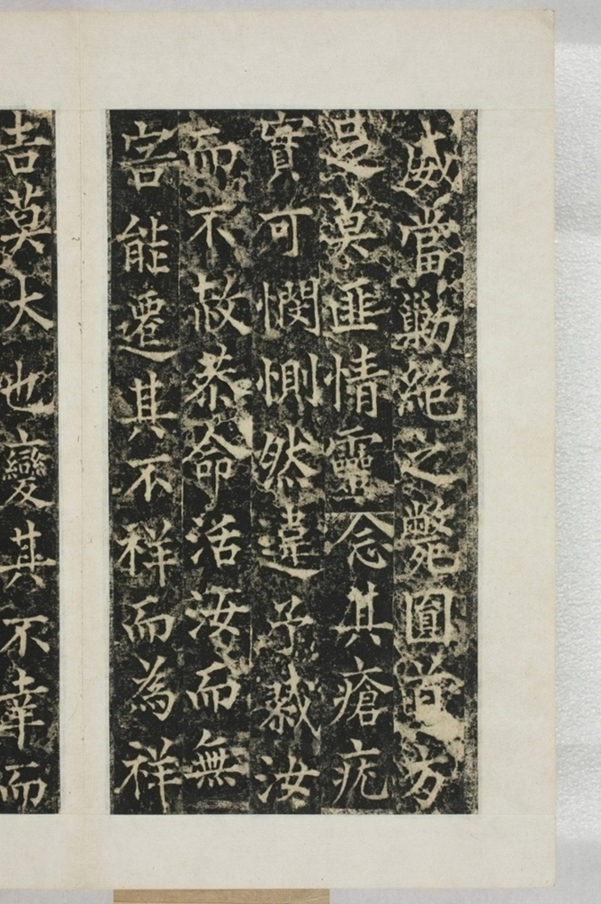 威當勦絕之斃圓首方
足莫匪情靈念其瘡疣
實可憫惻然違予 汝
而不赦恭命活汝而無
害能遷其不祥而為祥
吉莫大也變其不幸而